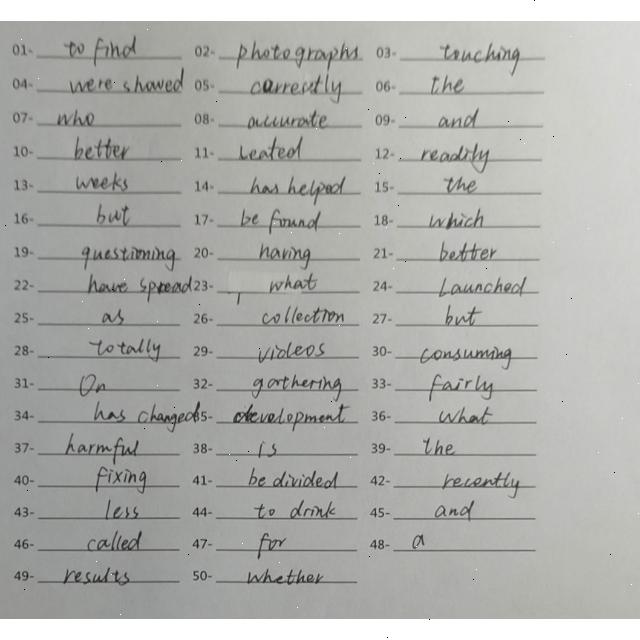 01- to find 02- photographs 03- touching
04- were showed 05- correctly 06- the
07- who 08- accurate 09- and
10- better 11- leated 12- readily
13- weeks 14- has helped 15- the
16- but 17- be found 18- which
19- questioning 20- having 21- better
22- have spread 23- what 24- Launched
25- as 26- collection 27- but
28- totally 29- videos 30- consuming
31- On 32- gathering 33- fairly
34- has changed 35- development 36- what
37- harmful 38- is 39- the
40- fixing 41- be divided 42- recently
43- less 44- to drink 45- and
46- called 47- for 48- a
49- results 50- whether